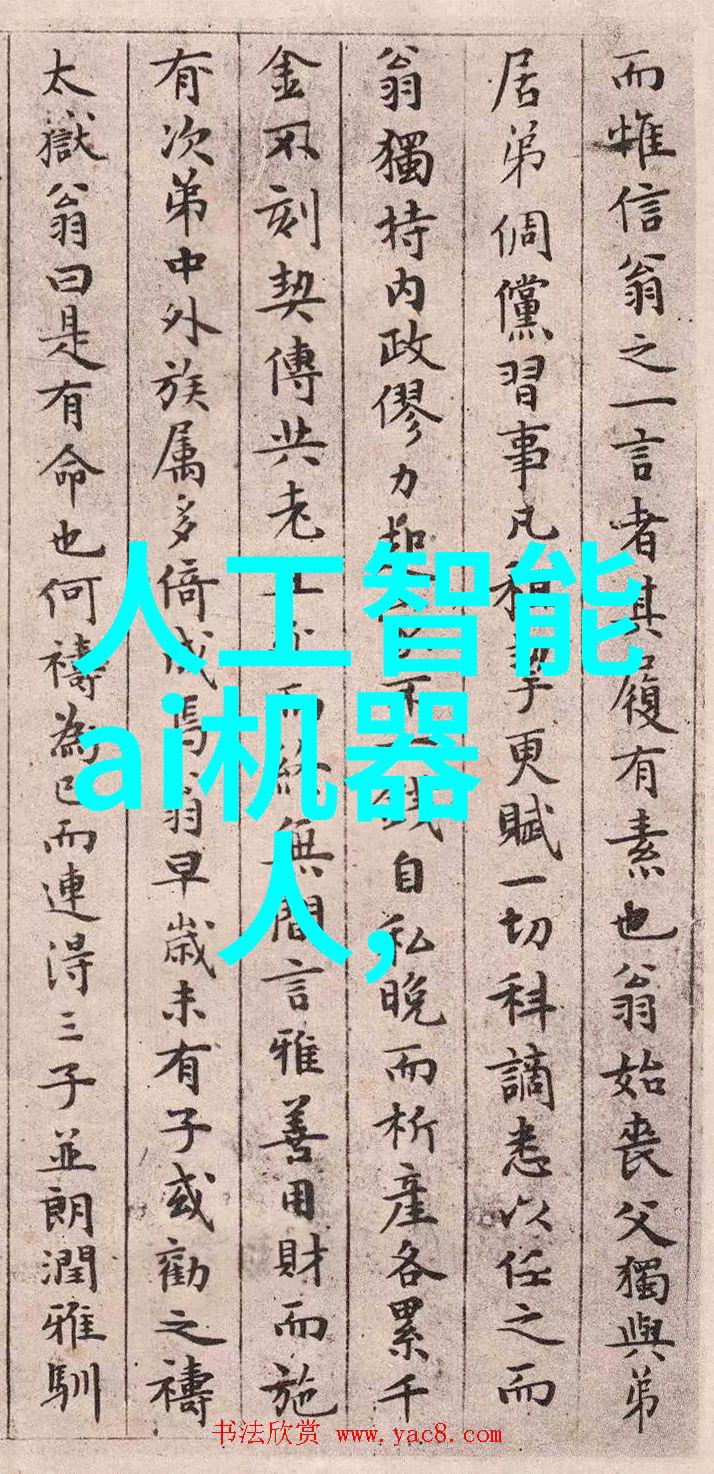 而惟信翁之一言者其履有素也翁始喪父獨與弟
居弟倜儻習事凡稱挈更賦一切科謫悉以任之而
翁獨持内政僇力起不錢自私晚而析產各累千
金不刻契傳共老而終無間言雅善用財而施
有次第中外族属多倚成焉翁早歲未有子或勸之禱
太嶽翁曰是有命也何禱為已而連得三子並朗潤雅馴
人工智能
ai机器
人,
书法欣赏 www.yac8.com